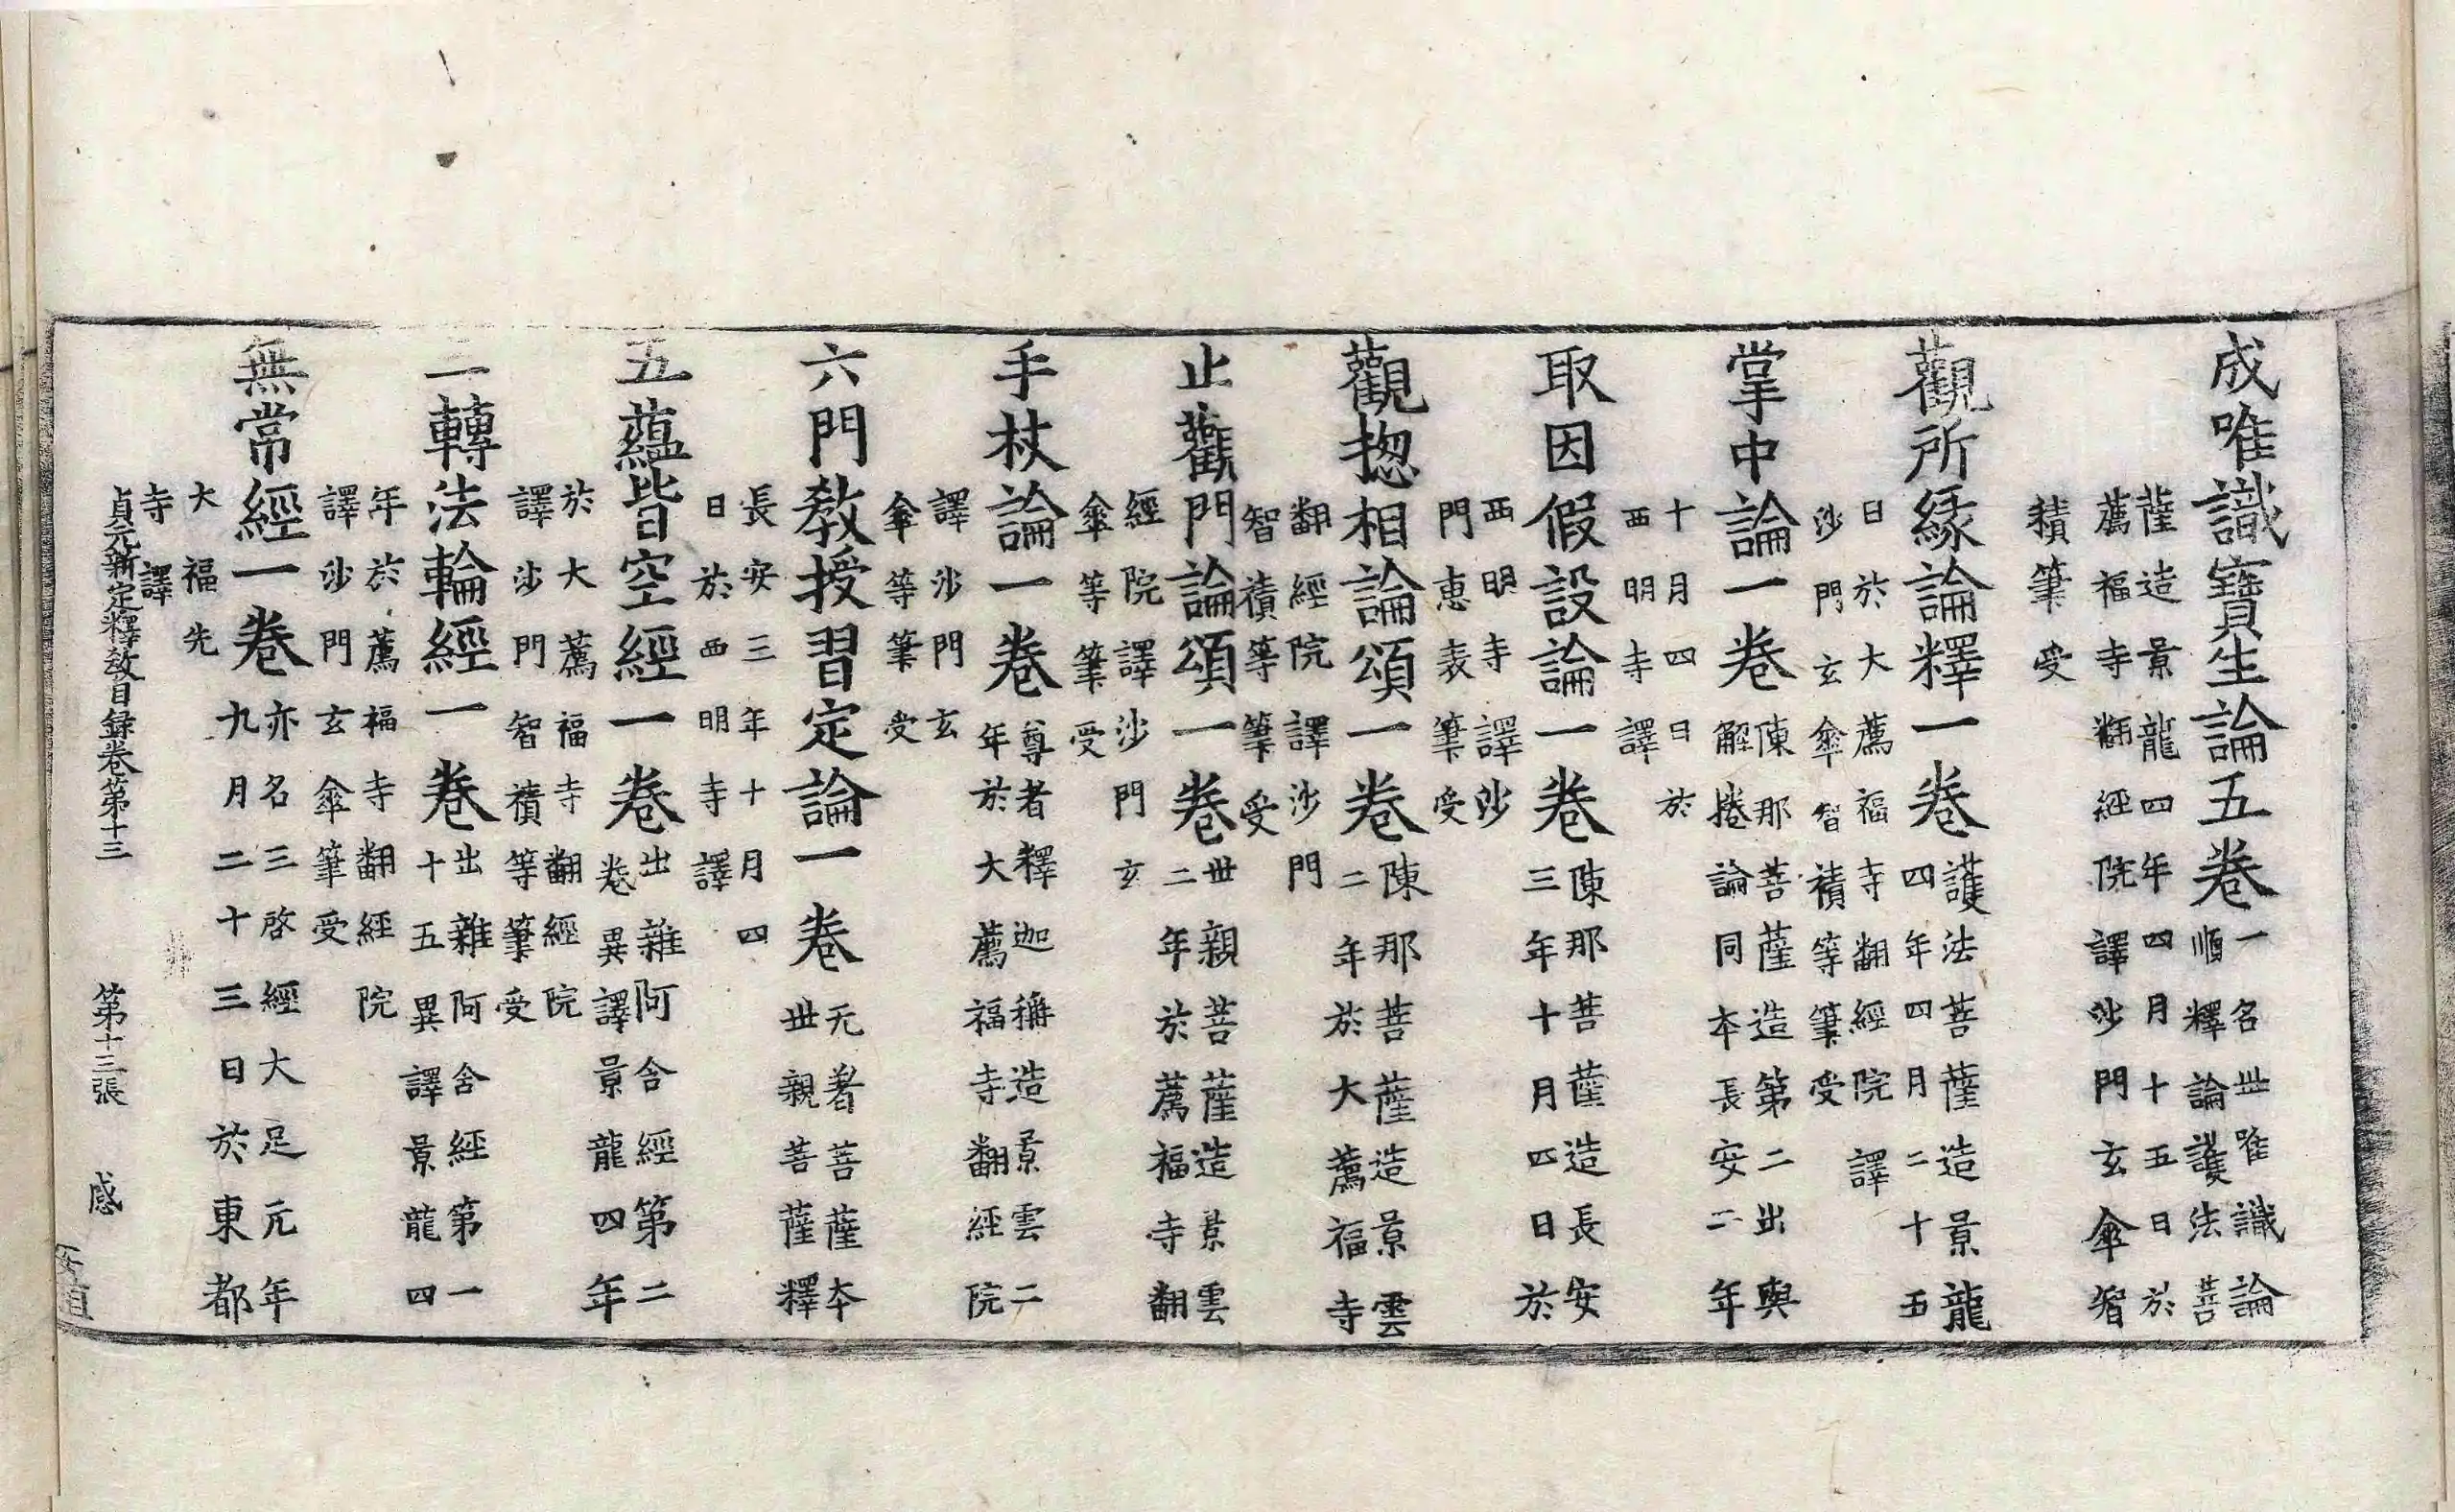 成唯識寶生論五卷一名丗唯識論
順釋論護法菩
薩造景龍四年四月十五日於
薦福寺翻經院譯沙門玄傘智
積筆受
觀所緣論釋一卷護法菩薩造景龍
四年四月二十五
日於大薦福寺翻經院譯
沙門玄傘智積等筆受
掌中論一卷陳那菩薩造第二出與
解捲論同本長安二年
十月四日於
西明寺譯
取因假設論一卷陳那菩薩造長安
三年十月四日於
西明寺譯沙
門惠表筆受
觀揔相論頌一卷陳那菩薩造景雲
二年於大薦福寺
翻經院譯沙門
智積等筆受
止觀門論頌一卷丗親菩薩造景雲
二年於薦福寺翻
經院譯沙門玄
傘等筆受
手杖論一卷尊者釋迦稱造景雲二
年於大薦福寺翻經院
譯沙門玄
傘等筆受
六門教授習定論一卷无著菩薩本
丗親菩薩釋
長安三年十月四
日於西明寺譯
五蘊皆空經一卷出雜阿含經第二
卷異譯景龍四年
於大薦福寺翻經院
譯沙門智積等筆受
三轉法輪經一卷出雜阿含經第一
十五異譯景龍四
年於薦福寺翻經院
譯沙門玄傘筆受
無常經一卷亦名三啓經大足元年
九月二十三日於東都
大福先
寺譯
貞元新定釋敎目録卷第十三 第十三張 感